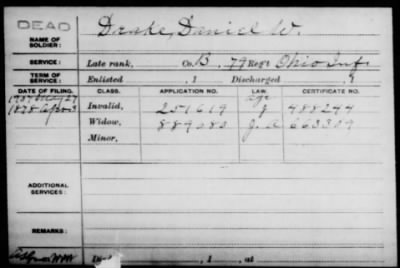 DEAD
NAME OF SOLDIER: Drake, Daniel W.
SERVICE: Late rank, Co. B, 79 Reg't Ohio Inf.
TERM OF SERVICE: Enlisted , 1 Discharged , 1
DATE OF FILING. CLASS. APPLICATION NO. LAW. CERTIFICATE NO.
Age
1878 Invalid, 251619 J 488244
Widow, 889080 J. A 663309
Minor,
ADDITIONAL SERVICES:
Died , 1 , at